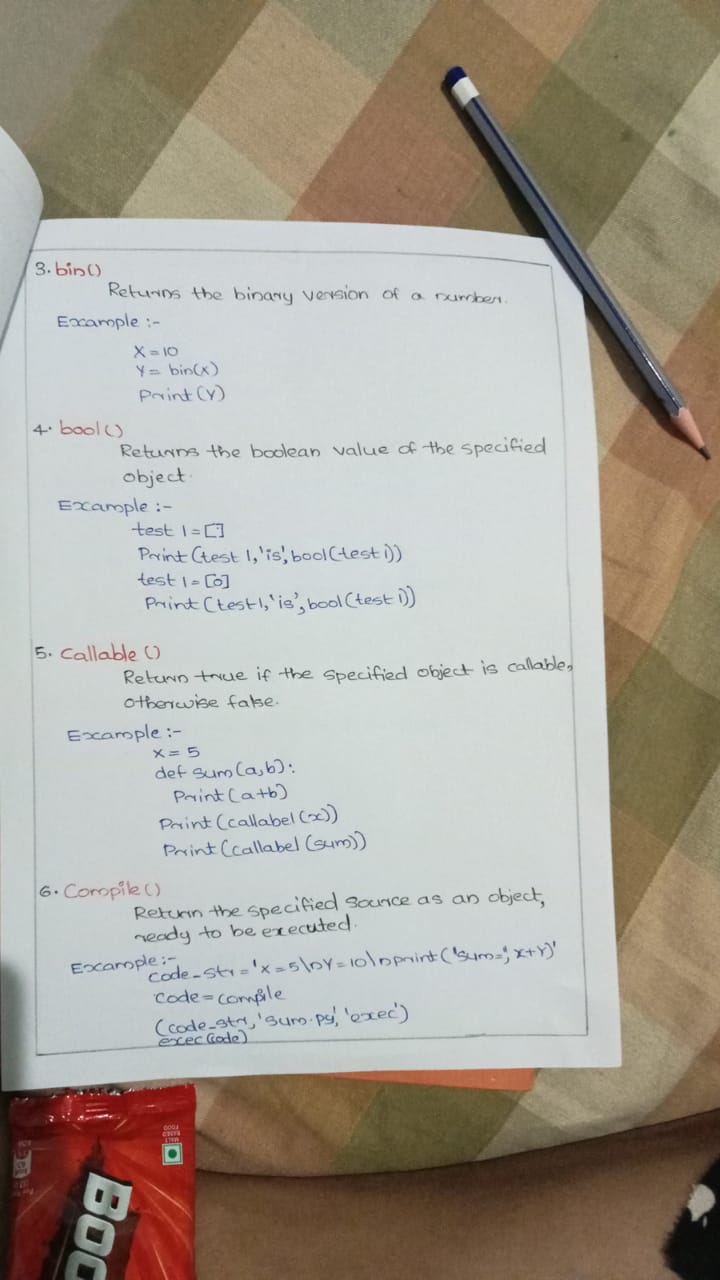 3. bin()
Returns the binary version of a number.
Example :-
X = 10
Y = bin(x)
Print (Y)
4. bool()
Returns the boolean value of the specified
object.
Example :-
test 1 = []
Print (test 1, 'is', bool(test 1))
test 1 = [0]
Print (test 1, 'is', bool(test 1))
5. Callable ()
Return true if the specified object is callable,
otherwise false.
Example :-
x = 5
def sum(a,b):
Print (a+b)
Print (callabel (x))
Print (callabel (sum))
6. Compile ()
Return the specified source as an object,
ready to be executed.
Example :-
code_str = 'x = 5\nY = 10\nprint('sum=', x+Y)'
code = compile
(code_str, 'sum.py', 'exec')
exec (code)
MALT
BASED
FOOD
BOO